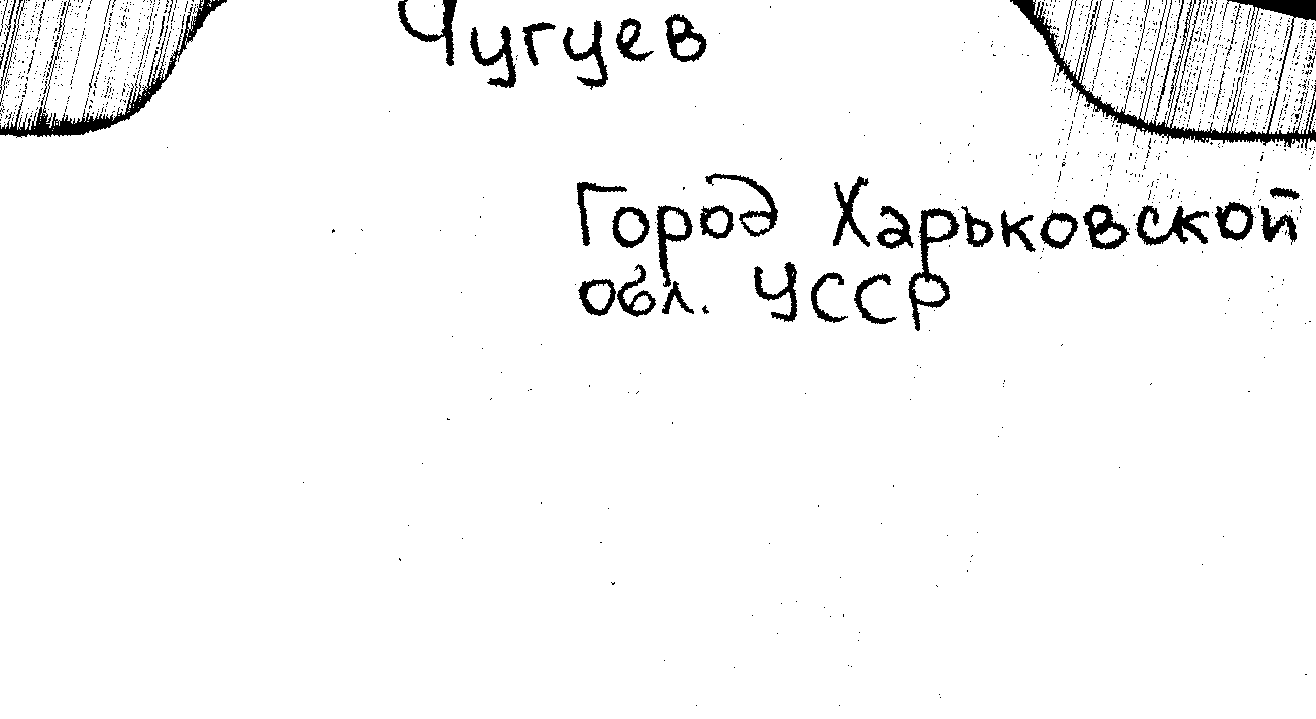 Чугуев
Город Харьковской
обл. УССР